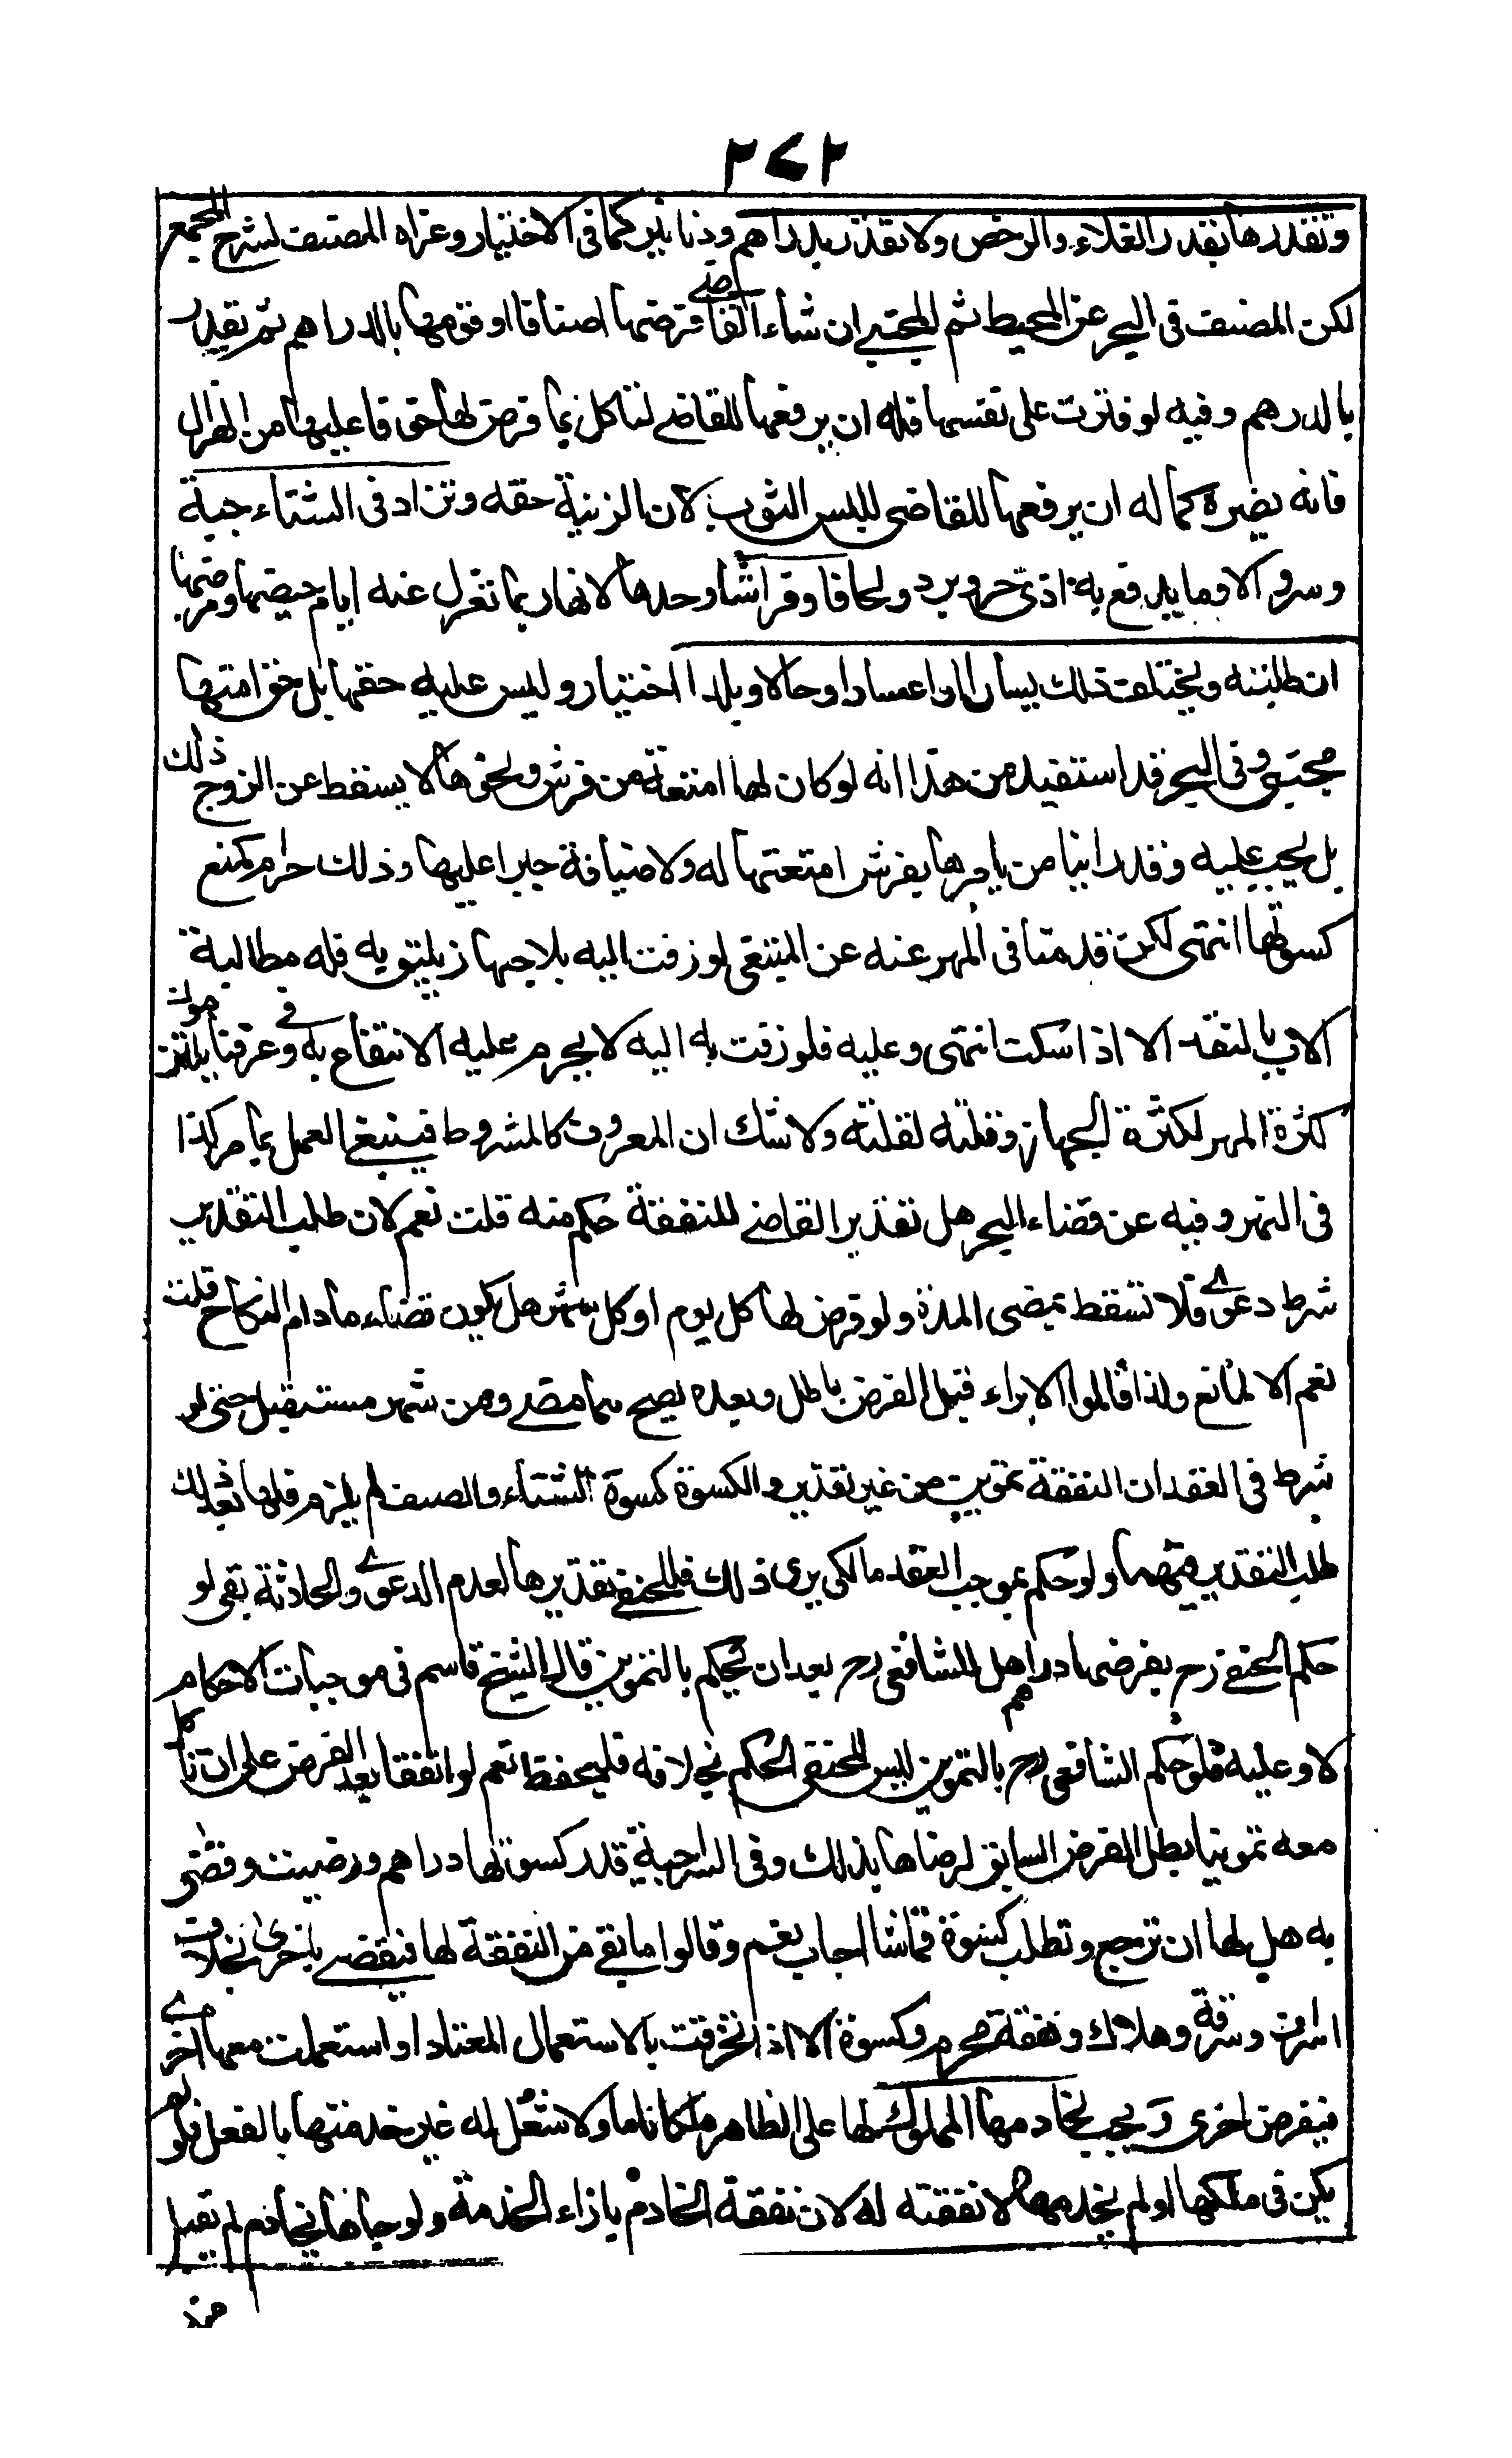 ٢٧٢
وتقدرها بقدر الغلاء والرخص ولا تقدر بدراهم ودنانير كما في الاختيار وعزاه المصنف لشرح المجمع
لكن المصنف في البحر عن المحيط ثم المجتبى ان شاء القاضي فرضها اصنافا او قومها بالدراهم ثم يقدر
بالدرهم وفيه لو قترت على نفسها فله ان يرفعها للقاضي لتاكل مما فرض لها خوفا عليها من الهزال
فانه يضره كما له ان يرفعها للقاضي للبس الثوب لان الزينة حقه وتزاد في الشتاء جبة
وسروالا وما يدفع به اذى حر وبرد ولحافا وفراشا وحدها لانها ربما تعزل عنه ايام حيضها ومرضها
ان طلبته ويختلف ذلك يسارا واعسارا وحالا وبلدا اختيار وليس عليه خفها بل خف امتها
مجتبى وفي البحر قد استفيد من هذا انه لو كان لها امتعة من فرش ونحوها لا يسقط عن الزوج ذلك
بل يجب عليه وقد راينا من يامرها بفرش امتعتها له ولاضيافه جبرا عليها وذلك حرام كمنع
كسوتها انتهى لكن قدمنا في المهر عنه عن المبتغى لو زفت اليه بلا جهاز يليق به فله مطالبة
الاب بالنقد الا اذا سكت انتهى وعليه فلو زفت به اليه لا يحرم عليه الانتفاع به وفي عرفنا يلتزمون
كثرة المهر لكثرة الجهاز وقلته لقلته ولا شك ان المعروف كالمشروط فينبغي العمل بما مر كذا
في النهر وفيه عن قضاء البحر هل تقدير القاضي للنفقة حكم منه قلت نعم لان طلب التقدير
شرط دعوى فلا تسقط بمضي المدة ولو فرض لها كل يوم او كل شهر هل يكون قضاء مادام النكاح قلت
نعم الا لمانع ولذا قالوا الابراء قبل الفرض باطل وبعده يصح مما مضى ومن شهر مستقبل حتى لو
شرط في العقد ان النفقة تموين من غير تقدير والكسوة كسوة الشتاء والصيف لم يلزم فلها بعد ذلك
طلب التقدير فيهما ولو حكم بموجب العقد مالكي يرى ذلك فللحنفي تقديرها لعدم الدعوى والحادثة بقي لو
حكم الحنفي رح بفرضها دراهم هل للشافعي رح بعده ان يحكم بالتموين قال الشيخ قاسم في موجبات الاحكام
لا وعليه فلو حكم الشافعي رح بالتموين ليس للحنفي الحكم بخلافه فليحفظ نعم لو اتفقا بعد الفرض على ان تاكل
معه تموينا بطل الفرض السابق لرضاها بذلك وفي السراجية قدر كسوتها دراهم ورضيت وقضى
به هل لها ان ترجع وتطلب كسوة قماشا اجاب نعم وقالوا ما بقي من النفقة لها فيقضي باخرى بخلاف
اسراف وسرقة وهلاك ونفقة محرم وكسوة الا اذا تخرقت بالاستعمال المعتاد او استعملت معها اخرى
فيفرض اخرى ويجب لخادمها المملوك لها على الظاهر ملكا تاما ولا شغل له غير خدمتها بالفعل فلو لم
يكن في ملكها او لم يخدمها لا نفقة له لان نفقة الخادم بازاء الخدمة ولو جاءها بخادم لم تقبل
منه